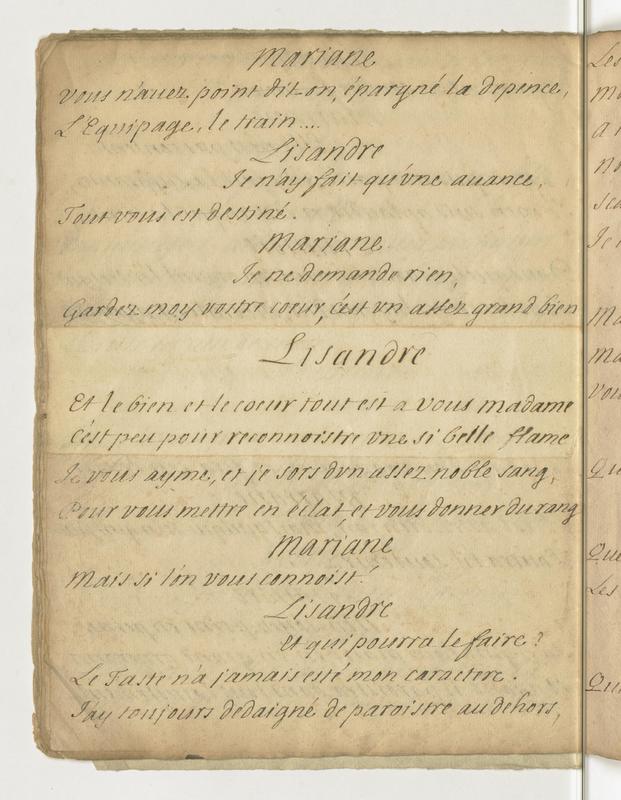 Mariane
Vous n'auez point dit-on, épargné la depence,
L'Equipage, le train....
Lisandre
Je n'ay fait qu'vne auance,
Tout vous est destiné.
Mariane
Je ne demande rien,
Gardez moy vostre coeur, c'est vn assez grand bien
Lisandre
Et le bien et le coeur tout est a vous madame
C'est peu pour reconnoistre vne si belle flame
Je vous ayme, et je sors d'vn assez noble sang,
Pour vous mettre en éclat, et vous donner du rang
Mariane
Mais si l'on vous connoist?
Lisandre
Et qui pourra le faire?
Le Faste n'a jamais esté mon caractere.
J'ay toujours dedaigné de paroistre au dehors,
Les
Je
Que
Les